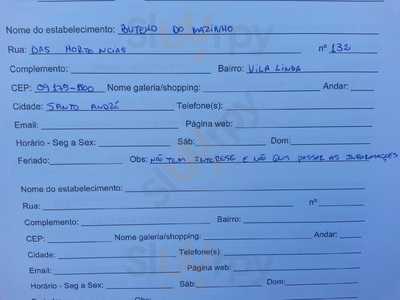 Nome do estabelecimento: BUTEKO DO MAZINHO
Rua: DAS HORTO NCIAS nº 132
Complemento: Bairro: VILA LINDA
CEP: 09175-500 Nome galeria/shopping: Andar:
Cidade: SANTO ANDRÉ Telefone(s):
Email: Página web:
Horário - Seg a Sex: Sáb: Dom:
Feriado: Obs: NÃO TEM INTERESE E NÃO QUIS PASSAR AS INFORMAÇÕES
Nome do estabelecimento:
Rua: nº
Complemento: Bairro:
CEP: Nome galeria/shopping: Andar:
Cidade: Telefone(s):
Email: Página web:
Horário - Seg a Sex: Sáb: Dom:
Obs: